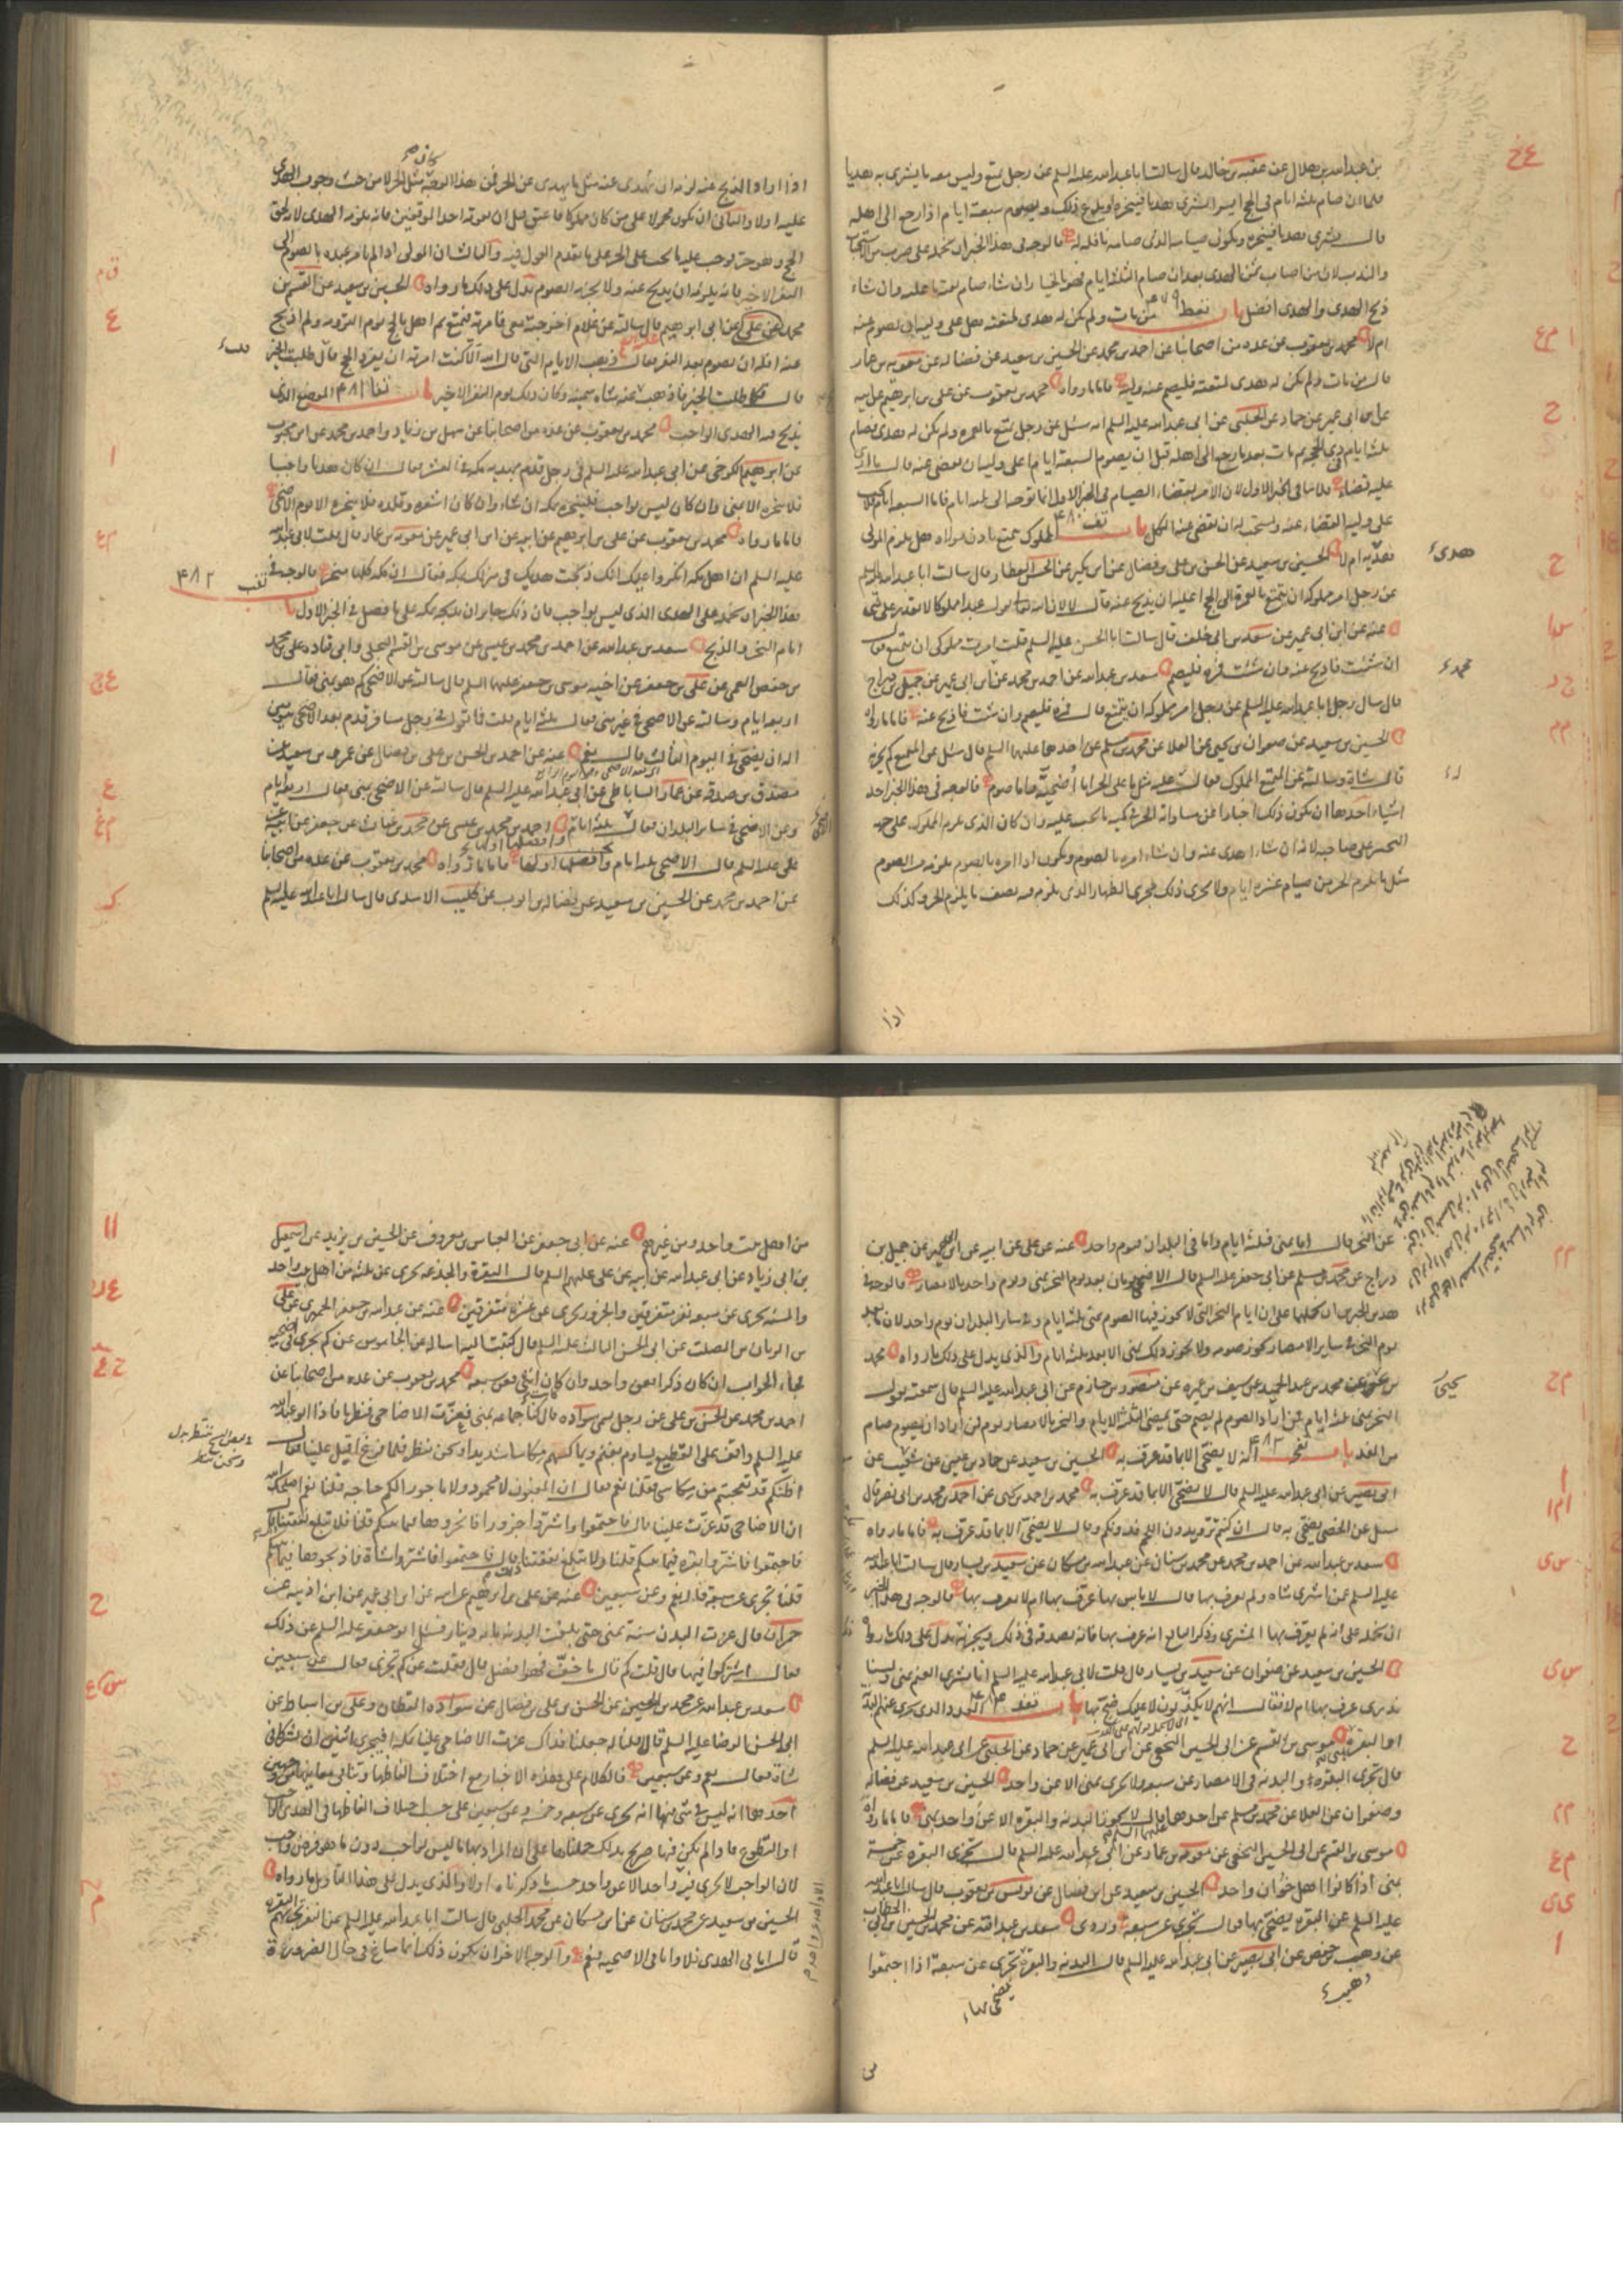 بن عبدالله بن هلال عن عقبة بن خالد قال سالت ابا عبدالله عليه السلم عن رجل تمتع وليس معه ما يشترى به هديا
فلما ان صام ثلثة ايام فى الحج ايسر ايشترى هديا فينحره او يدع ذلك ويصوم سبعة ايام اذا رجع الى اهله
قال يشترى هديا فينحره ويكون صيامه الذى صامه نافلة له فالوجه فى هذا الخبر ان نحمله على ضرب من الاستحباب
والندب لان من اصاب ثمن الهدى بعد ان صام الثلثة ايام فهو بالخيار ان شاء صام بقية ما عليه وان شاء
ذبح الهدى والهدى افضل باب من مات ولم يكن له هدى لمتعته هل على وليه ان يصوم عنه
ام لا محمد بن يعقوب عن عدة من اصحابنا عن احمد بن محمد عن الحسين بن سعيد عن فضالة عن معوية بن عمار
قال من مات ولم يكن له هدى لمتعته فليصم عنه وليه فاما ما رواه محمد بن يعقوب عن على بن ابرهيم عن ابيه
عن ابن ابى عمير عن حماد عن الحلبى عن ابى عبدالله عليه السلم انه سئل عن رجل تمتع بالعمرة ولم يكن له هدى فصام
ثلثة ايام فى ذى الحجة ثم مات بعد ما رجع الى اهله قبل ان يصوم السبعة ايام اعلى وليه ان يقضى عنه قال ما ارى
عليه قضاء فلا ينافى الخبر الاول لان الامر بقضاء الصيام فى الخبر الاول انما توجه الى ثلثة ايام فاما السبعة ايام فلا يجب
على وليه القضاء عنه ويستحب له ان يقضى عنه الكل باب المملوك يتمتع باذن مولاه هل يلزم المولى
هديه ام لا الحسين بن سعيد عن الحسن بن على بن فضال عن ابن بكير عن الحسن العطار قال سالت ابا عبدالله عليه السلم
عن رجل امر مملوكه ان يتمتع بالعمرة الى الحج اعليه ان يذبح عنه قال لا لان الله تعالى يقول عبدا مملوكا لا يقدر على شئ
عنه عن ابن ابى عمير عن سعد بن ابى خلف قال سالت ابا الحسن عليه السلم قلت امرت مملوكى ان يتمتع فقال
ان شئت فاذبح عنه وان شئت فمره فليصم سعد بن عبدالله عن احمد بن محمد عن ابن ابى عمير عن جميل بن دراج
قال سال رجل ابا عبدالله عليه السلم عن رجل امر مملوكه ان يتمتع قال فمره فليصم وان شئت فاذبح عنه فاما ما رواه
الحسين بن سعيد عن صفوان بن يحيى عن العلا عن محمد بن مسلم عن احدهما عليهما السلم قال سئل عن المتمتع كم يجزيه
قال شاة وسالته عن المتمتع المملوك فقال عليه مثل ما على الحر اما اضحية واما صوم فالوجه فى هذا الخبر احد
اشياء احدها ان يكون ذلك اخبارا عن مساواته الحر فى كمية ما يجب عليه وان كان الذى يلزم المملوك على جهة
التخيير على صاحبه لانه ان شاء اهدى عنه وان شاء امره بالصوم ويكون اذا امره بالصوم يلزمه من الصوم
مثل ما يلزم الحر من صيام عشرة ايام ولا يجرى ذلك مجرى الظهار الذى يلزم فيه نصف ما يلزم الحر وكذلك
اذا
اذا اراد الذبح عنه لزمه ان يهدى عنه مثل ما يهدى عن الحر
عليه اولا والثانى ان يكون محمولا على من كان مملوكا فاعتق قبل ان يفوته احد الموقفين فانه يلزمه الهدى لانه لحق
الحج وهو حر فوجب عليه ما يجب على الحر على ما تقدم القول فيه والثالث ان المولى اذا لم يامر عبده بالصوم الى
النفر الاخير فانه يلزمه ان يذبح عنه ولا يجزيه الصوم يدل على ذلك ما رواه الحسين بن سعيد عن القسم بن
محمد عن على عن ابى ابرهيم قال سالته عن غلام اخرجته معى فامرته فتمتع ثم اهل بالحج يوم التروية ولم اذبح
عنه افله ان يصوم بعد النفر فقال ذهبت الايام التى قال الله الا كنت امرته ان يفرد الحج قال طلبت الخير
قال كما طلبت الخير فاذهب فاذبح عنه شاة سمينة وكان ذلك يوم النفر الاخير باب الموضع الذى
يذبح فيه الهدى الواجب محمد بن يعقوب عن عدة من اصحابنا عن سهل بن زياد واحمد بن محمد عن ابن محبوب
عن ابرهيم الكرخى عن ابى عبدالله عليه السلم فى رجل قدم بهديه مكة فى العشر فقال ان كان هديا واجبا
فلا ينحره الا بمنى وان كان ليس بواجب فلينحره بمكة ان شاء وان كان اشعره وقلده فلا ينحره الا يوم الاضحى
فاما ما رواه محمد بن يعقوب عن على بن ابرهيم عن ابيه عن ابن ابى عمير عن معوية بن عمار قال قلت لابى عبدالله
عليه السلم ان اهل مكة انكروا عليك انك ذبحت هديك فى منزلك بمكة فقال ان مكة كلها منحر فالوجه فى
هذا الخبر ان نحمله على الهدى الذى ليس بواجب فان ذلك جايز ان يذبحه بمكة على ما فصل فى الخبر الاول
ايام النحر والذبح سعد بن عبدالله عن احمد بن محمد بن عيسى عن موسى بن القسم البجلى وابى قتادة على بن محمد
بن حفص القمى عن على بن جعفر عن اخيه موسى بن جعفر عليهما السلم قال سالته عن الاضحى كم هو بمنى فقال
اربعة ايام وسالته عن الاضحى فى غير منى فقال ثلثة ايام قلت فما تقول فى رجل مسافر قدم بعد الاضحى بيومين
اله ان يضحى فى اليوم الثالث قال نعم عنه عن احمد بن الحسن بن على بن فضال عن عمرو بن سعيد عن
مصدق بن صدقة عن عمار الساباطى عن ابى عبدالله عليه السلم قال سالته عن الاضحى بمنى فقال اربعة ايام
وعن الاضحى فى ساير البلدان فقال ثلثة ايام احمد بن محمد بن عيسى عن محمد بن غياث عن جعفر عن ابيه عن
على عليه السلم قال الاضحى ثلثة ايام وافضلها اولها فاما ما رواه محمد بن يعقوب عن عدة من اصحابنا
عن احمد بن محمد عن الحسين بن سعيد عن فضالة بن ايوب عن كليب الاسدى قال سالت ابا عبدالله عليه السلم
عن النحر قال اما بمنى فثلثة ايام واما فى البلدان فيوم واحد عنه عن على عن ابيه عن ابن ابى عمير عن جميل بن
دراج عن محمد بن مسلم عن ابى جعفر عليه السلم قال الاضحى يومان بعد يوم النحر بمنى ويوم واحد بالامصار فالوجه فى
هذين الخبرين ان نحملهما على ان ايام النحر التى لا يجوز فيها الصوم بمنى ثلثة ايام وفى ساير البلدان يوم واحد لان ما بعد
يوم النحر فى ساير الامصار يجوز صومه ولا يجوز ذلك بمنى الا بعد ثلثة ايام والذى يدل على ذلك ما رواه محمد
بن محمد بن عبدالحميد عن سيف بن عميرة عن منصور بن حازم عن ابى عبدالله عليه السلم قال سمعته يقول
النحر بمنى ثلثة ايام فمن اراد الصوم لم يصم حتى يمضى الثلثة الايام والنحر بالامصار يوم فمن اراد ان يصوم صام
من الغد باب انه لا يضحى الا بما قد عرف به الحسين بن سعيد عن حماد بن عيسى عن شعيب عن
ابى بصير عن ابى عبدالله عليه السلم قال لا يضحى الا بما قد عرف به محمد بن احمد بن يحيى عن احمد بن محمد بن ابى نصر قال
سئل عن الخصى يضحى به قال ان كنتم تريدون اللحم فدونكم وقال لا يضحى الا بما قد عرف به فاما ما رواه
سعد بن عبدالله عن احمد بن محمد عن محمد بن سنان عن عبدالله بن مسكان عن سعيد بن يسار قال سالت ابا عبدالله
عليه السلم عن من اشترى شاة ولم يعرف بها قال لا باس بها عرف بها ام لا يعرف بها فالوجه فى هذا الخبر
ان نحمله على انه لم يعرف بها المشترى وذكر البايع انه عرف بها فانه يصدقه فى ذلك ويجزيه يدل على ذلك ما رواه
الحسين بن سعيد عن صفوان عن سعيد بن يسار قال قلت لابى عبدالله عليه السلم انا نشترى الغنم بمنى ولسنا
ندرى عرف بها ام لا فقال انهم لا يكذبون لا عليك ضح بها باب العدد الذى يجزى عنهم البدنة
او البقرة موسى بن القسم عن ابى الحسين النخعى عن ابن ابى عمير عن حماد عن الحلبى عن ابى عبدالله عليه السلم
قال تجزى البقرة والبدنة فى الامصار عن سبعة ولا تجزى بمنى الا عن واحد الحسين بن سعيد عن فضالة
وصفوان عن العلا عن محمد بن مسلم عن احدهما عليهما السلم قال لا تجوز البدنة والبقرة الا عن واحد بمنى فاما ما رواه
موسى بن القسم عن ابى الحسين النخعى عن معوية بن عمار عن ابى عبدالله عليه السلم قال تجزى البقرة عن خمسة
بمنى اذا كانوا اهل خوان واحد الحسين بن سعيد عن ابن فضال عن يونس بن يعقوب قال سالت ابا عبدالله
عليه السلم عن البقرة يضحى بها فقال تجزى عن سبعة وروى سعد بن عبدالله عن محمد بن الحسين بن ابى الخطاب
عن وهيب بن حفص عن ابى بصير عن ابى عبدالله عليه السلم قال البدنة والبقرة تجزى عن سبعة اذا اجتمعوا
من اهل بيت واحد ومن غيرهم عنه عن ابى جعفر عن العباس بن معروف عن الحسين بن يزيد عن اسمعيل
بن ابى زياد عن ابى عبدالله عن ابيه عن على عليهم السلم قال البقرة والجذعة تجزى عن ثلثة من اهل بيت واحد
والمسنة تجزى عن سبعة نفر متفرقين والجزور تجزى عن عشرة متفرقين عنه عن عبدالله بن جعفر الحميرى عن على
بن الريان بن الصلت عن ابى الحسن الثالث عليه السلم قال كتبت اليه اساله عن الجاموس عن كم يجزى فى الضحية
فجاء الجواب ان كان ذكرا فعن واحد وان كان انثى فعن سبعة محمد بن يعقوب عن عدة من اصحابنا عن
احمد بن محمد عن الحسن بن على عن رجل يسمى سوادة قال كنا جماعة بمنى فعزت الاضاحى فنظرنا فاذا ابو عبدالله
عليه السلم واقف على القطيع يساوم بغنم ويماكسهم مكاسا شديدا ونحن ننظر فلما فرغ اقبل علينا فقال
اظنكم قد تعجبتم من مكاسى فقلنا نعم فقال ان المغبون لا محمود ولا ماجور الكم حاجة قلنا نعم اصلحك الله
ان الاضاحى قد عزت علينا قال فاجتمعوا واشتروا جزورا فانحروها فيما بينكم قلنا فلا تبلغ نفقتنا قال
فاجتمعوا فاشتروا بقرة فيما بينكم قلنا ولا تبلغ نفقتنا قال فاجتمعوا فاشتروا شاة فاذبحوها فيما بينكم
قلنا تجزى عن سبعة قال نعم وعن سبعين عنه عن على بن ابرهيم عن ابيه عن ابن ابى عمير عن ابن اذينة عن
حمران قال عزت البدن سنة بمنى حتى بلغت البدنة مائة دينار فسئل ابو جعفر عليه السلم عن ذلك
فقال اشتركوا فيها قال قلت كم قال ما خف فهو افضل قال فقلت عن كم تجزى فقال عن سبعين
سعد بن عبدالله عن محمد بن الحسين عن الحسن بن على بن فضال عن سوادة القطان وعلى بن اسباط عن
ابى الحسن الرضا عليه السلم قالا قلنا له جعلنا فداك عزت الاضاحى علينا بمكة افيجزى اثنين ان يشتركا فى
شاة فقال نعم وعن سبعين فالكلام على هذه الاخبار مع اختلاف الفاظها وتنافى معانيها من وجهين
احدهما انه ليس فى شئ منها انه تجزى عن سبعة وخمسة وعن سبعين على حسب اختلاف الفاظها فى الهدى الواجب
او التطوع فاذا لم يكن فيها صريح بذلك حملناها على ان المراد بها ما ليس بواجب دون ما هو فرض واجب
لان الواجب لا يجزى فيه واحد الا عن واحد حسب ما ذكرناه اولا والذى يدل على هذا التاويل ما رواه
الحسين بن سعيد عن محمد بن سنان عن ابن مسكان عن محمد الحلبى قال سالت ابا عبدالله عليه السلم عن النفر تجزيهم البقرة
قال اما فى الهدى فلا واما فى الاضحية فنعم والوجه الاخر ان يكون ذلك انما ساغ فى حال الضرورة